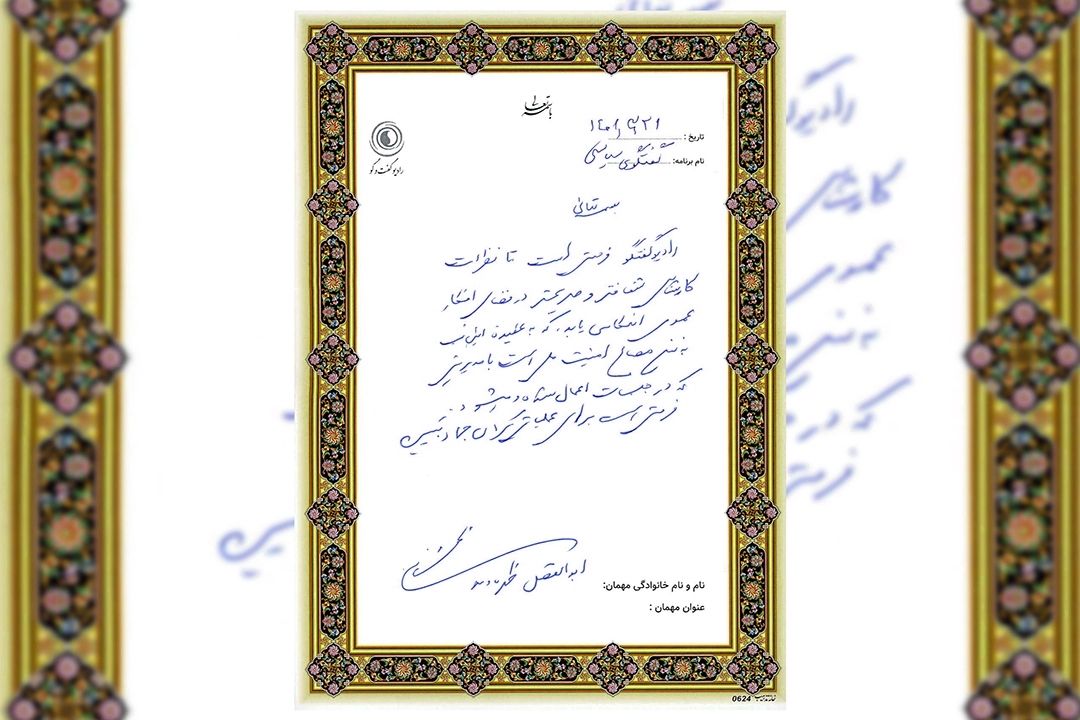 باسمه تعالی
تاریخ : ۱۴۰۱/۶/۲۱
نام برنامه: گفتگوی سیاسی
رادیو گفت و گو
بسمه تعالی
رادیو گفتگو فرصتی است تا نظرات
کارشناسی شفاف‌تر و صریح‌تر در فضای افکار
عمومی انعکاس یابد. که به عقیده اینجانب
به نفع مصالح امنیت ملی است با مدیریتی
که در جلسات اعمال شده و می‌شود
فرصتی است برای عملیاتی کردن جهاد تبیین
ابوالفضل ظهره‌وند
نام و نام خانوادگی مهمان:
عنوان مهمان :
0624